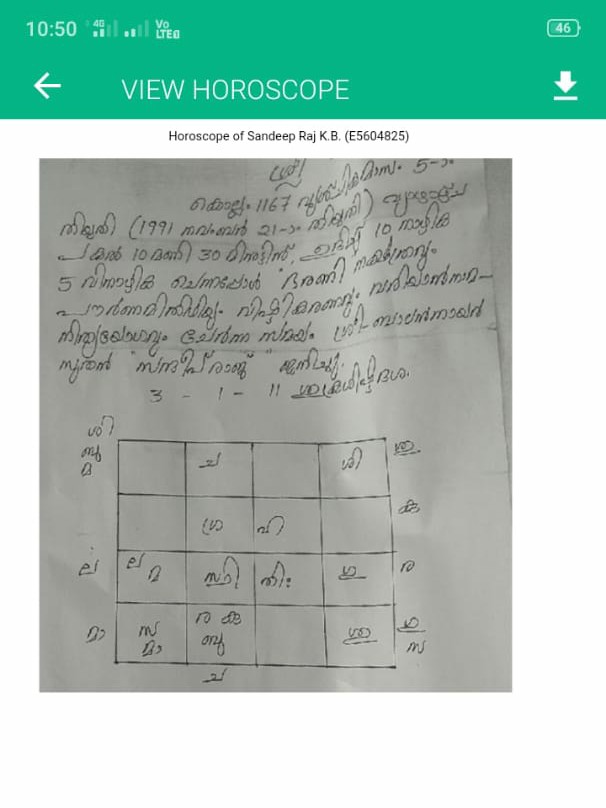 10:50 4G Vo LTE 46
VIEW HOROSCOPE
Horoscope of Sandeep Raj K.B. (E5604825)
ശ്രീ
കൊല്ലം 1167 വൃശ്ചികമാസം 5-ാം
തിയ്യതി (1991 നവംബർ 21-ാം തിയ്യതി) വ്യാഴാഴ്ച
പകൽ 10 മണി 30 മിനുട്ടിന്, ഉദിച്ച് 10 നാഴിക
5 വിനാഴിക ചെന്നപ്പോൾ ഭരണി നക്ഷത്രവും
പൗർണമിതിഥിയും വിഷ്ടികരണവും വരിയാൻനാമ-
നിത്യയോഗവും ചേർന്ന സമയം ശ്രീ ബാലൻനായർ
സുതൻ "സന്ദീപ് രാജ്" ജനിച്ചു.
3 - 1 - 11 ശുക്രശിഷ്ടദശ.
ശി
ബു
മ
ച
ശി
ശു
ഗ്ര
വി
കു
ല
ല
മ
സ്ഥി
തിഃ
ഗു
ര
മാ
സ
മാ
ര കു
ബു
ശു
ഗു
സ
ച